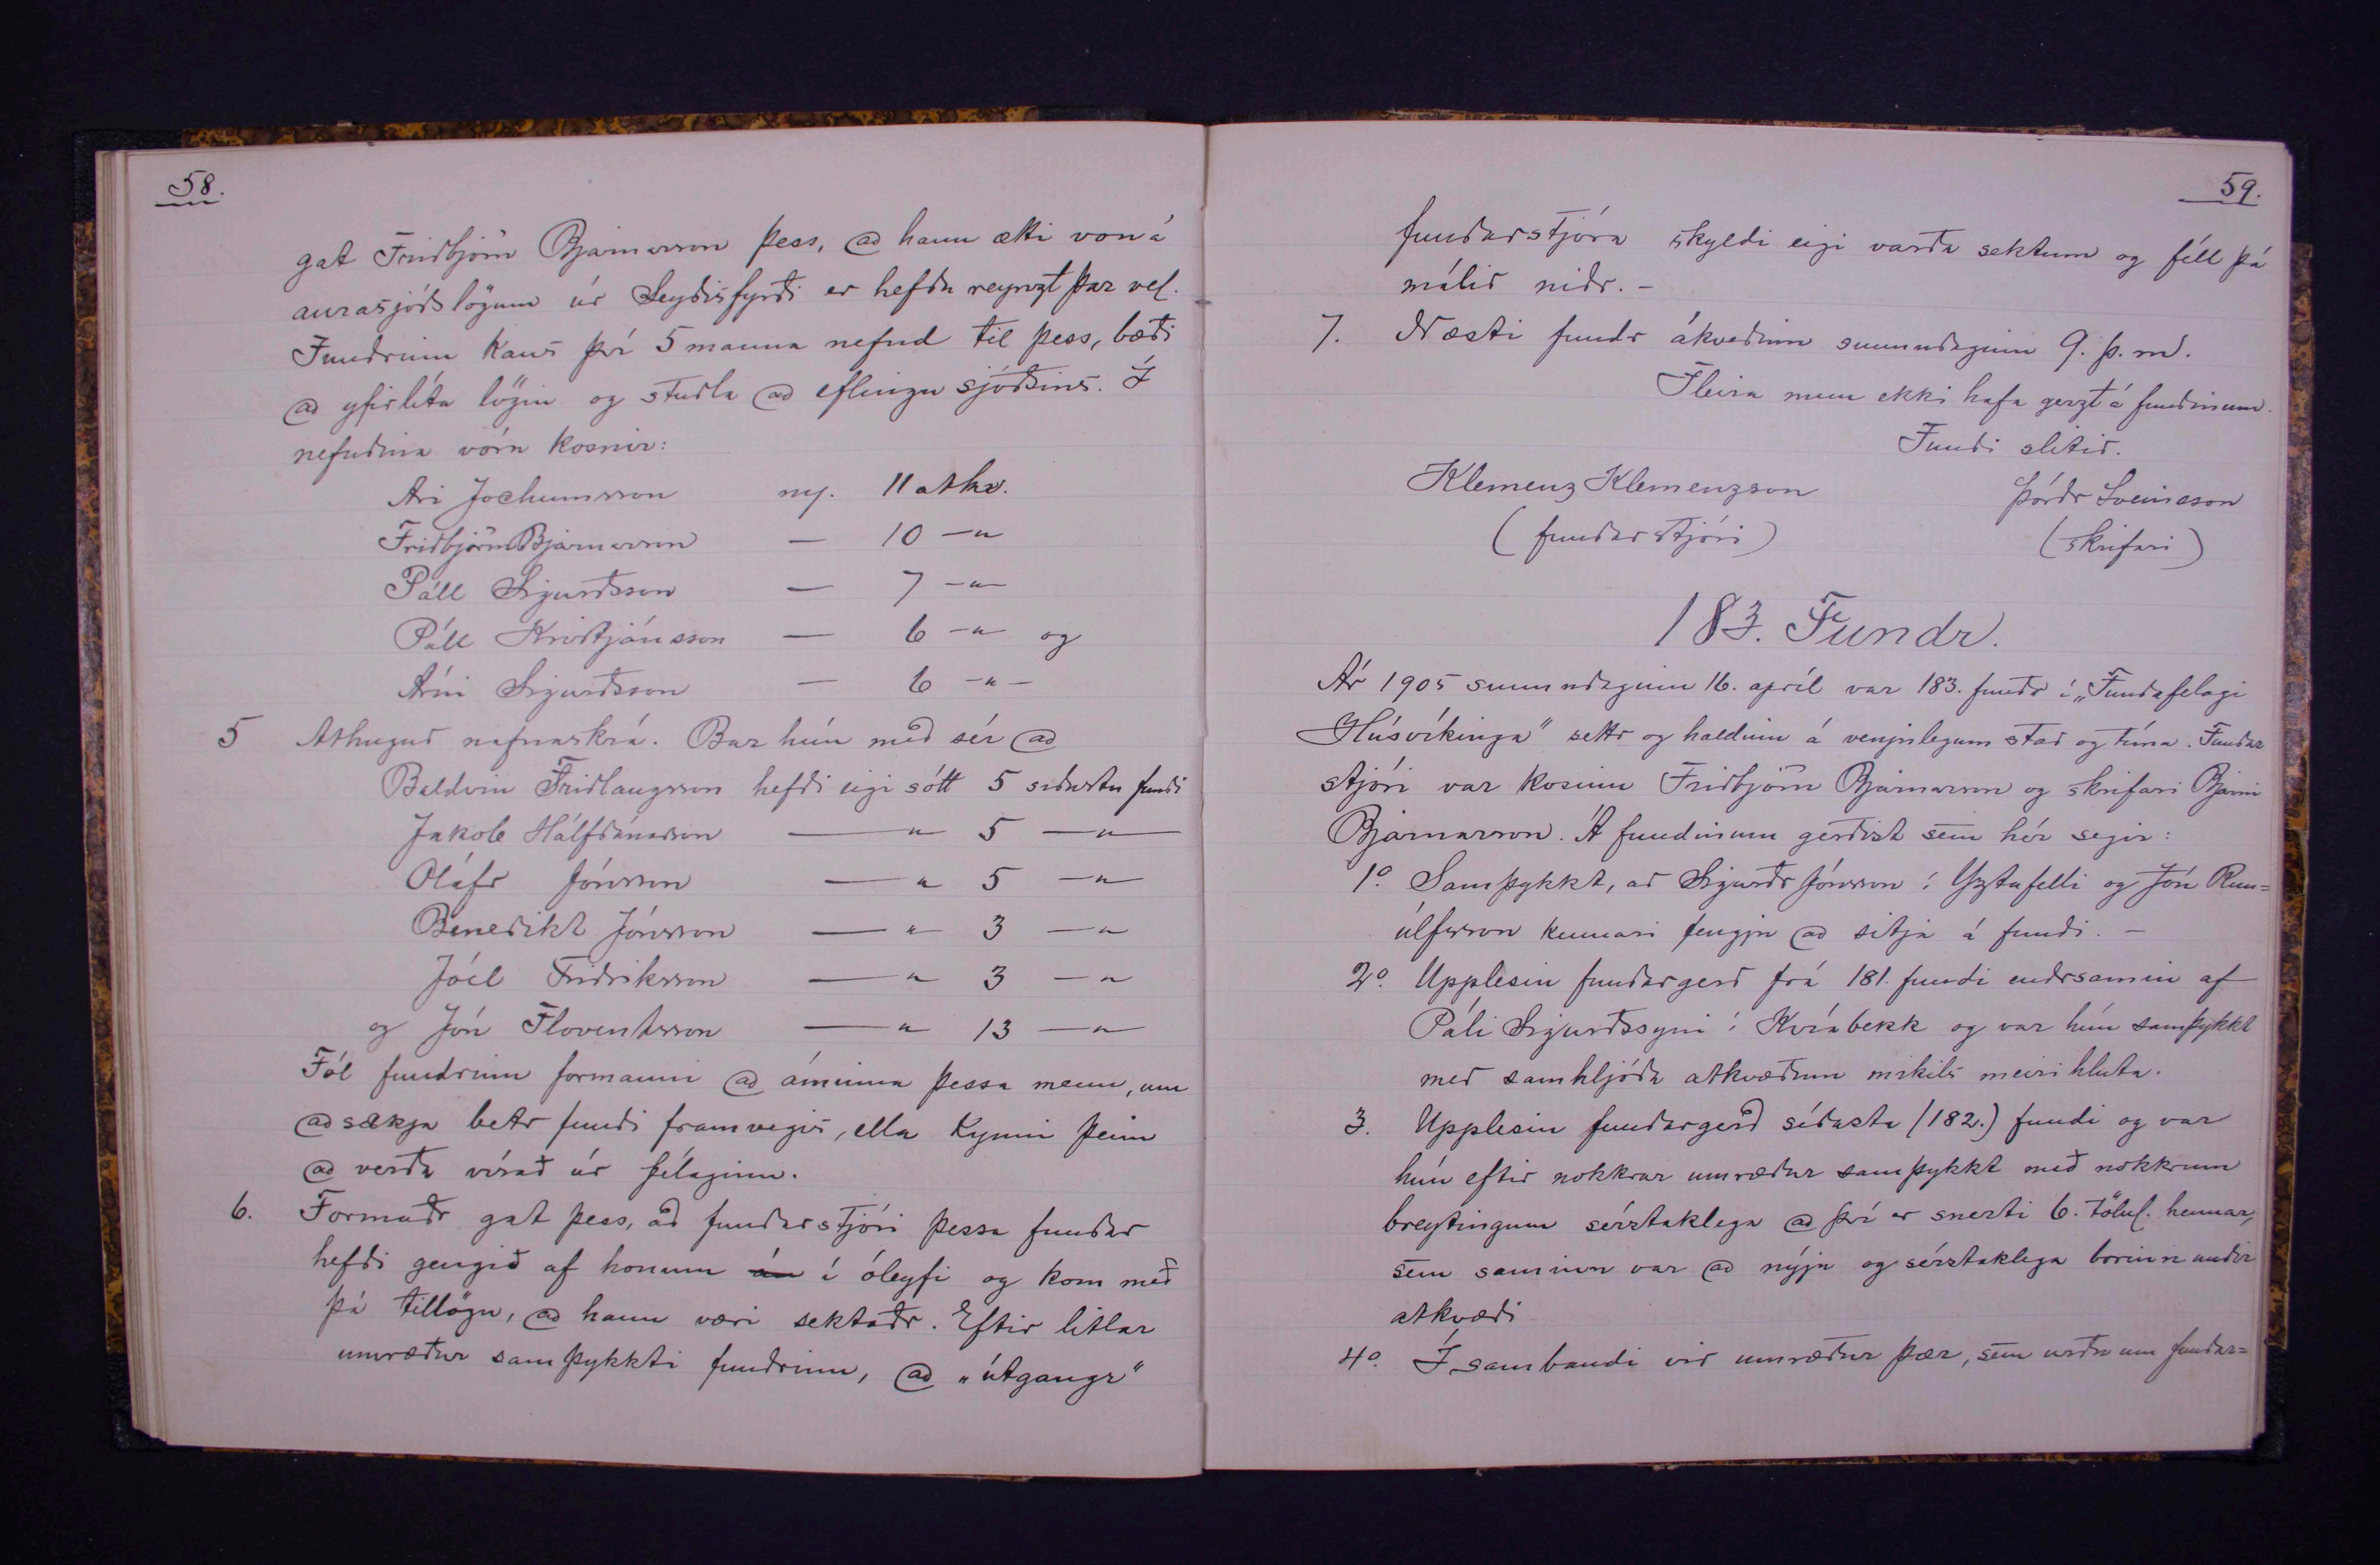 58.
gat Friðbjörn Bjarnarson þess, að hann ætti von á
aurasjóðslögum úr Seyðisfyrði er hefðu reynzt þar vel.
Fundrinn kaus því 5 manna nefnd til þess, bæði
að yfirlíta lögin og stuðla að eflingu sjóðsins. Í
nefndina vóru kosnir:
Ari Jochumsson mf. 11 atkv.
Friðbjörn Bjarnarson — 10 —„
Páll Sigurðsson — 7 —„—
Páll Kristjánsson — 6 —„ og
Árni Sigurðsson — 6 —„—
5 Athuguð nafnaskrá. Bar hún með sér að
Baldvin Friðlaugsson hefði eigi sótt 5 síðustu fundi
Jakob Hálfdánarson —„ 5 —„—
Ólafr Jónsson —„ 5 —„
Benedikt Jónsson —„ 3 —„
Jóel Friðriksson —„ 3 —„
og Jón Floventsson —„ 13 —„
Fól fundrinn formanni að áminna þessa menn, um
að sækja betr fundi framvegis, ella kynni þeim
að verða vísað úr félaginu.
6. Formaðr gat þess, að fundarstjóri þessa fundar
hefði gengið af honum án í óleyfi og kom með
þá tillögu, að hann væri sektaðr. Eftir litlar
umræður samþykkti fundrinn, að „útgangr"
59.
fundarstjóra skyldi eigi varða sektum og féll þá
málið niðr. –
7. Næsti fundr ákveðinn sunnudaginn 9. þ. m.
Fleira mun ekki hafa gerzt á fundinum.
Fundi slitið.
Klemenz Klemenzson Þórðr Sveinsson
(fundarstjóri) (skrifari)
183. Fundr.
Ár 1905 sunnudaginn 16. apríl var 183. fundr í „Fundafelagi
Húsvíkinga" settr og haldinn á venjulegum stað og tíma. Fundar
stjóri var kosinn Friðbjörn Bjarnarson og skrifari Bjarni
Bjarnarson. Á fundinum gerðist sem hér segir:
1o. Samþykkt, að Sigurðr Jónsson í Yztafelli og Jón Run=
úlfsson kennari fengju að sitja á fundi. –
2o. Upplesin fundargerð frá 181. fundi endrsamin af
Páli Sigurðssyni í Kvíabekk og var hún samþykkt
með samhljóða atkvæðum mikils meirihluta.
3. Upplesin fundargerð síðasta (182.) fundi og var
hún eftir nokkrar umræður samþykkt með nokkrum
breytingum sérstaklega að því er snerti 6. tölul. hennar,
sem saminn var að nýju og sérstaklega borinn undir
atkvæði
4o. Í sambandi við umræður þær, sem urðu um fundar=